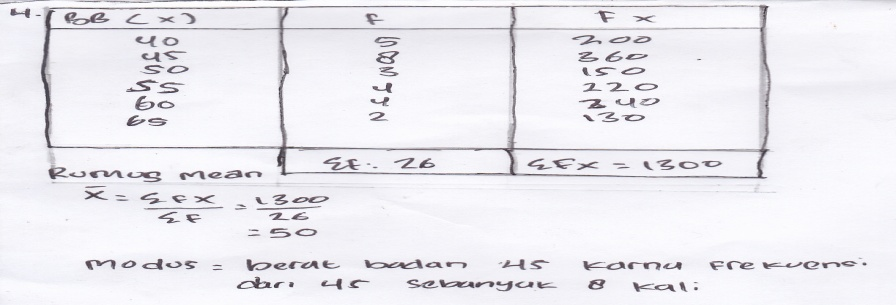 4. BB (x) F Fx
40 5 200
45 8 360
50 3 150
55 4 220
60 4 240
65 2 130
ΣF: 26 ΣFx = 1300
Rumus mean
x̄ = ΣFx = 1300
ΣF 26
= 50
modus = berat badan 45 karna frekuensi
dari 45 sebanyak 8 kali